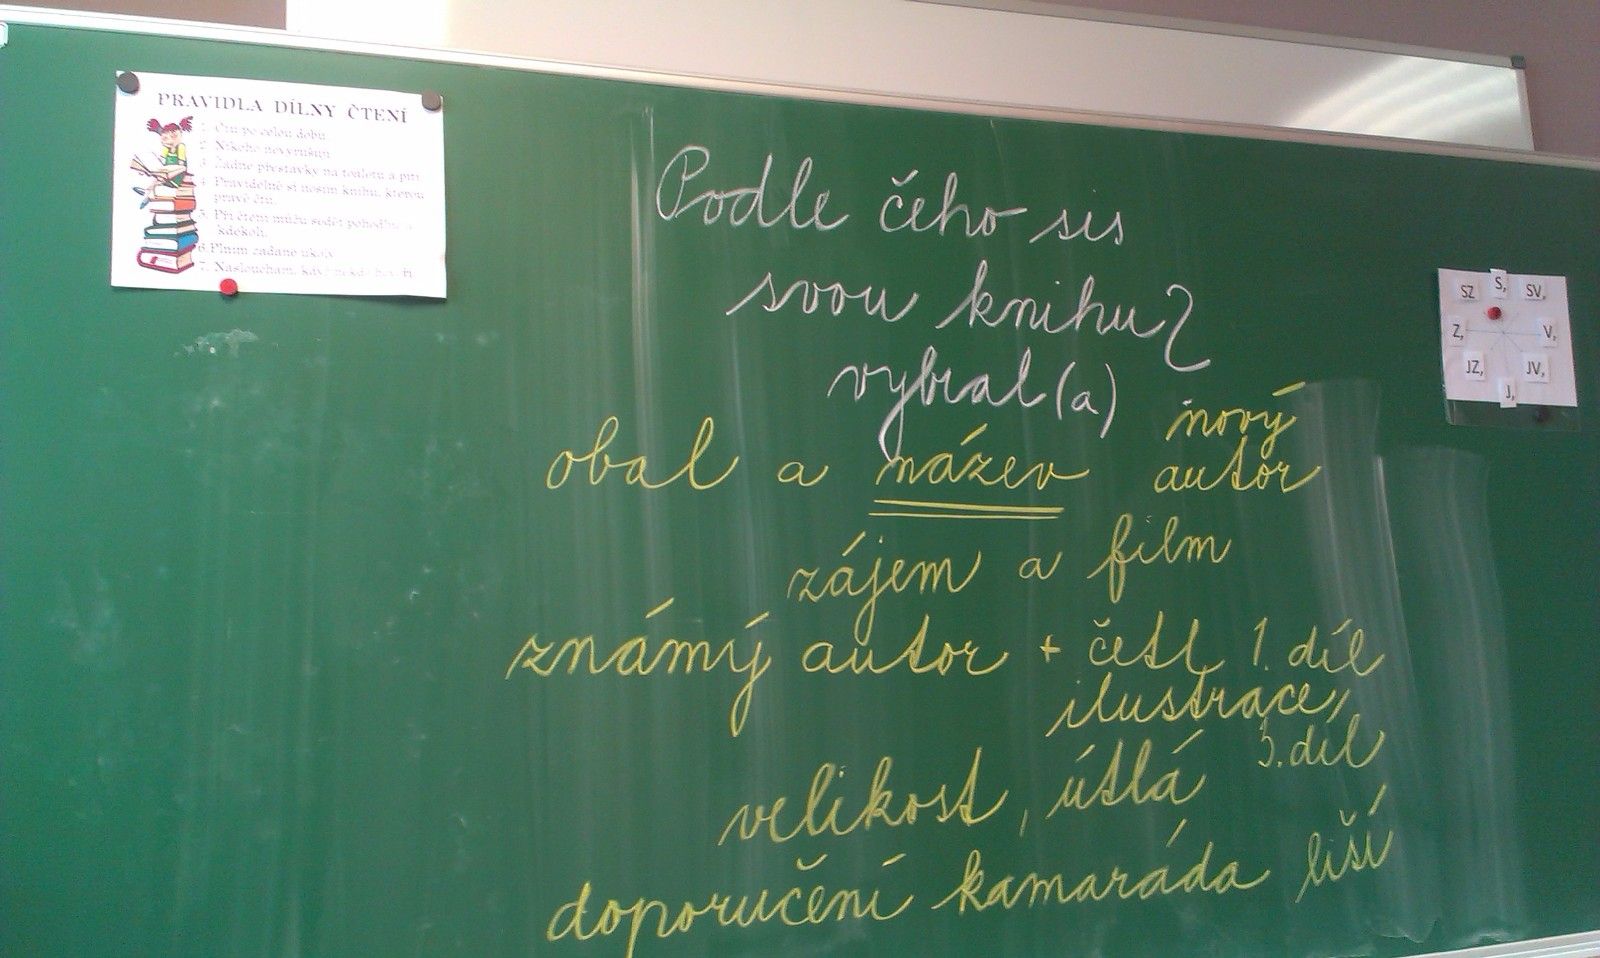 PRAVIDLA DÍLNY ČTENÍ
1. Čtu po celou dobu.
2. Nikoho nevyrušuji.
3. Žádné přestávky na toaletu a pití.
4. Pravidelně si nosím knihu, kterou
právě čtu.
5. Při čtení můžu sedět pohodlně a
kdekoli.
6. Plním zadané úkoly.
7. Naslouchám, když někdo hovoří.
Podle čeho sis
svou knihu?
vybral(a)
obal a název
nový
autor
zájem a film
známý autor + četl 1. díl
ilustrace,
velikost, útlá
3. díl
doporučení kamaráda liší
SZ S, SV,
Z, V,
JZ, JV,
J,